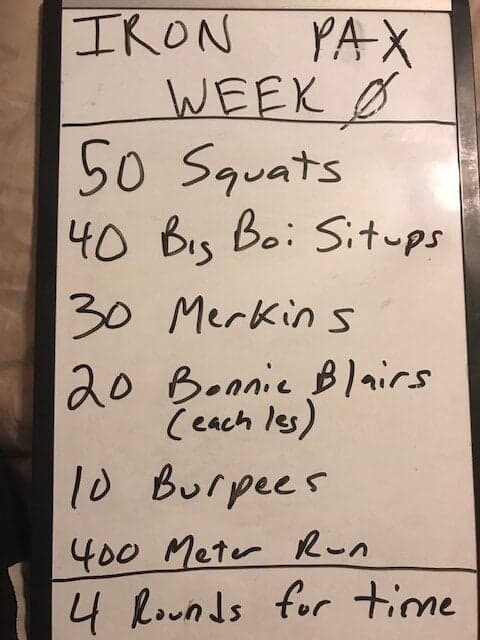 IRON PAX
WEEK Ø
50 Squats
40 Big Boi Situps
30 Merkins
20 Bonnie Blairs
(each leg)
10 Burpees
400 Meter Run
4 Rounds for time